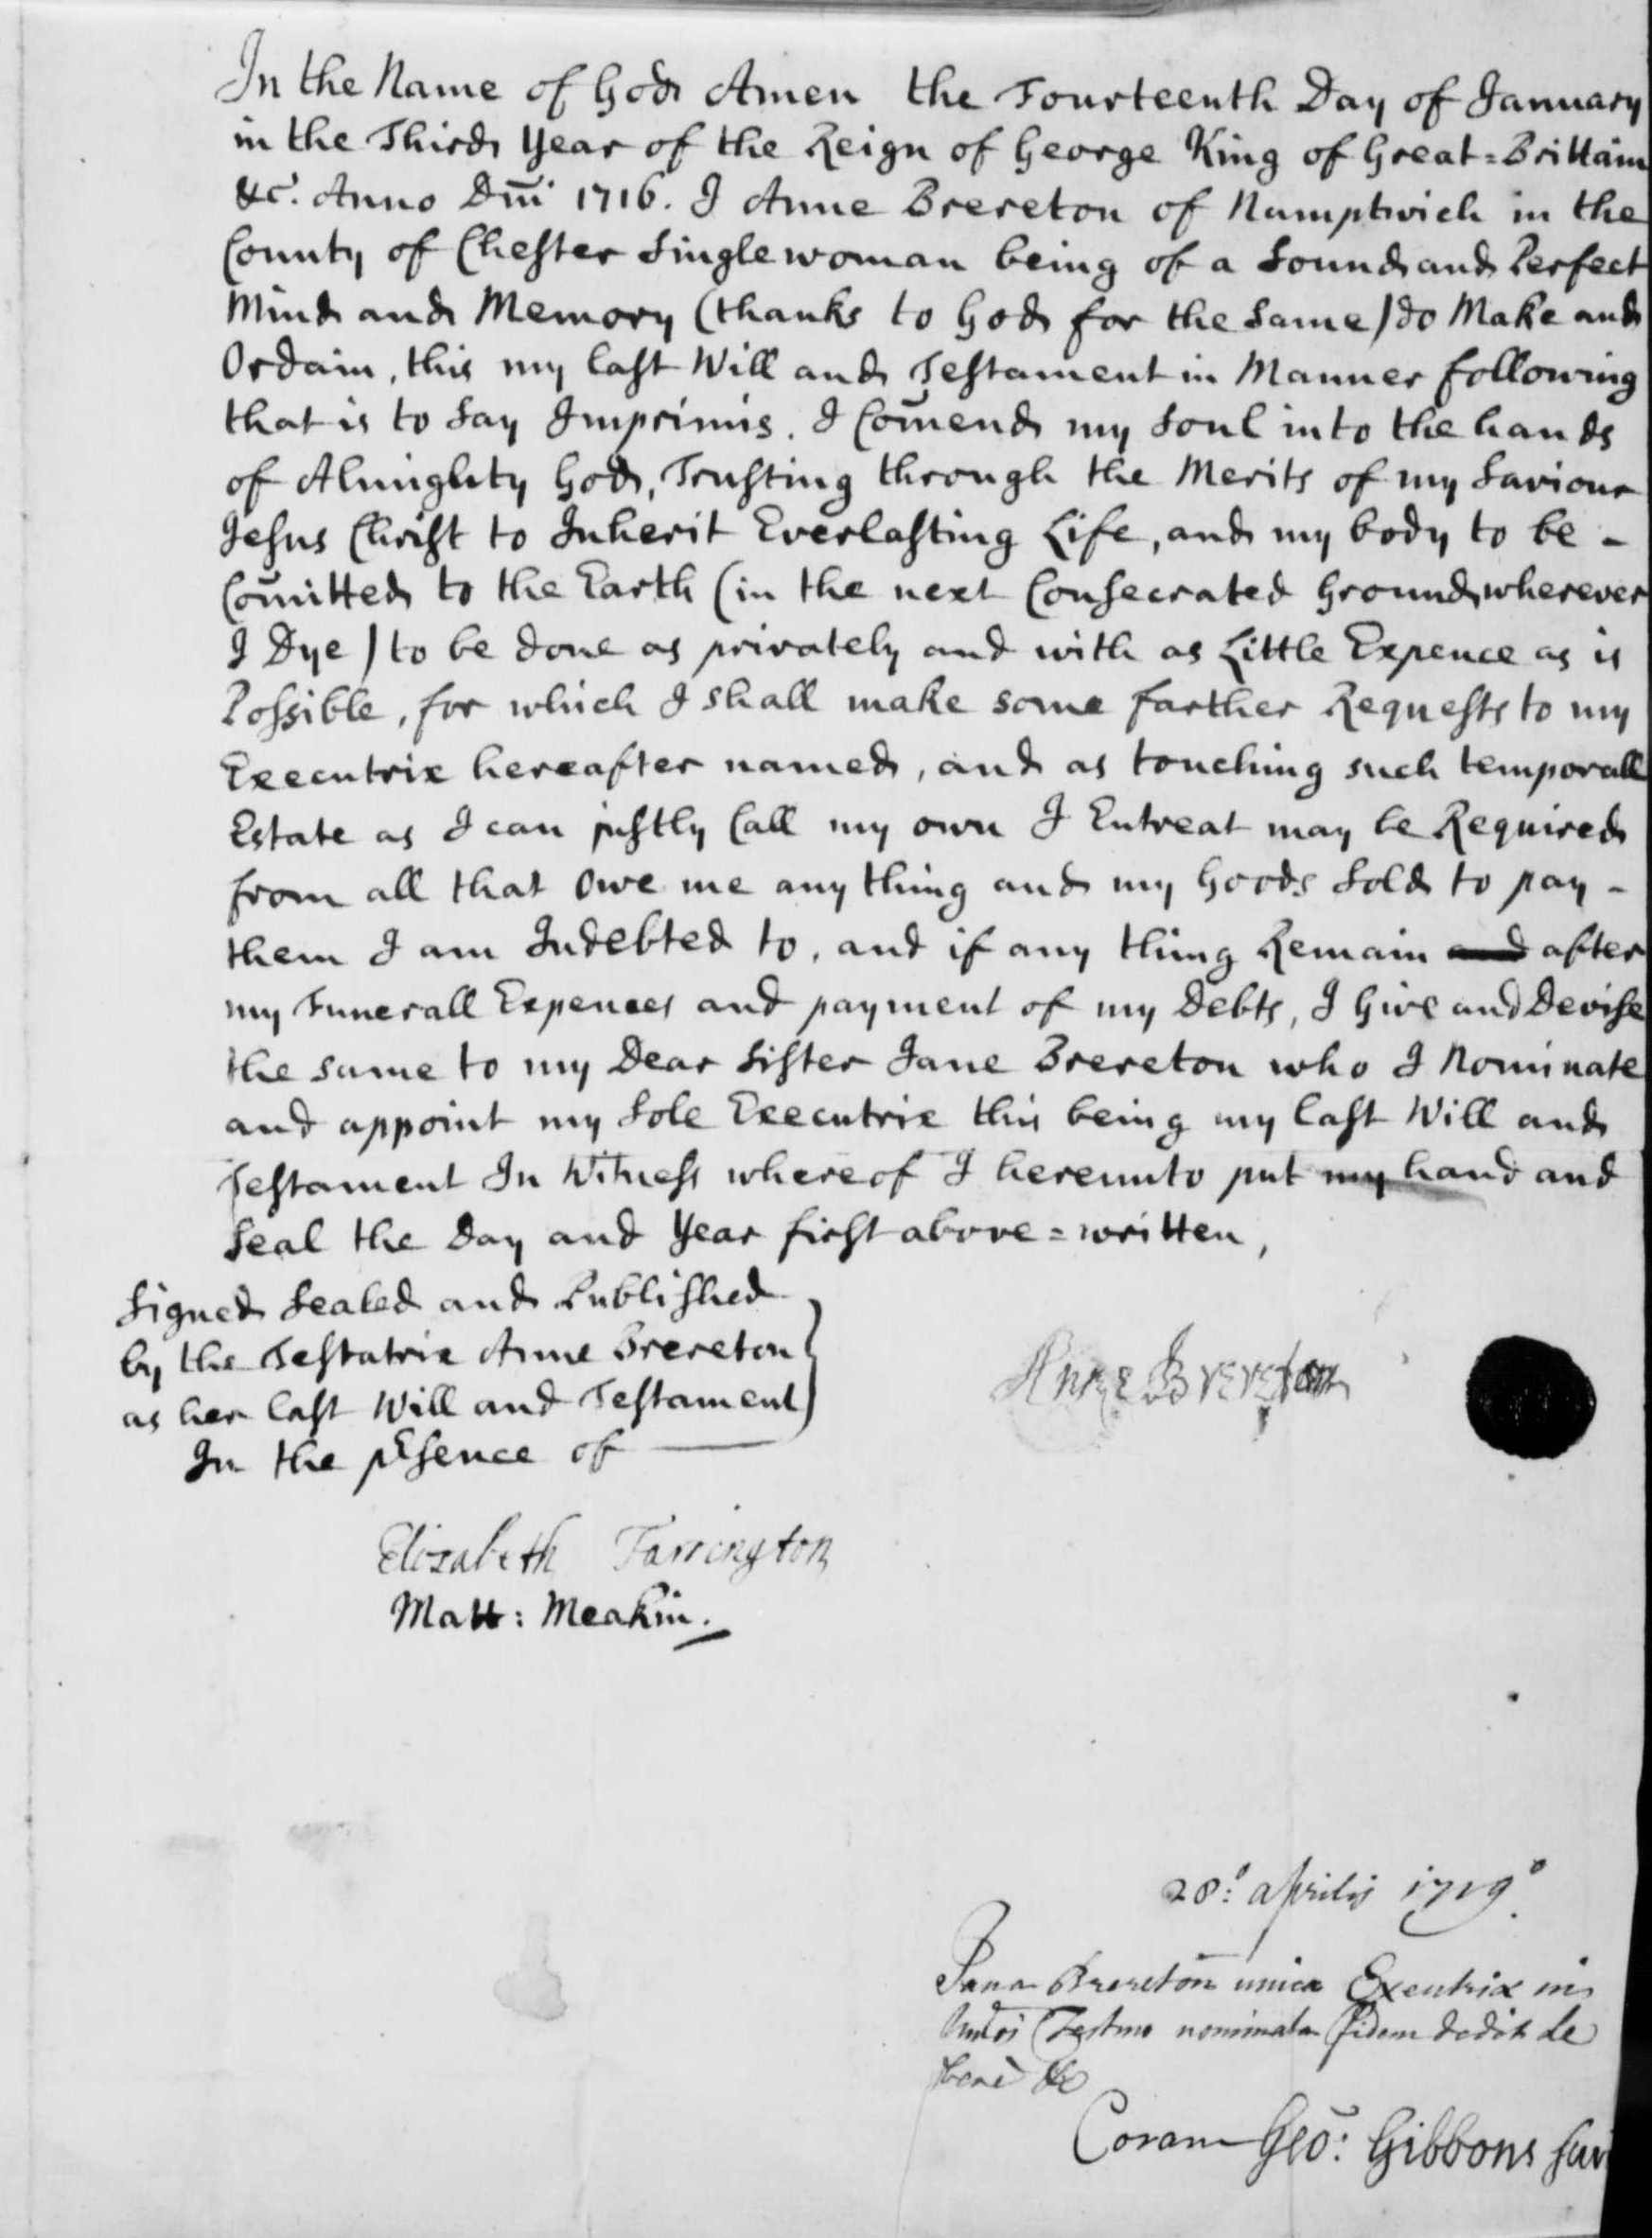 In the Name of God Amen the Fourteenth Day of January
in the Third Year of the Reign of George King of Great=Brittain
&c. Anno Dm̄i 1716. I Anne Brereton of Namptwich in the
County of Chester Singlewoman being of a Sound and Perfect
Mind and Memory (thanks to God for the Same) do Make and
Ordain, this my last Will and Testament in Manner following
that is to Say Imprimis. I Com̄end my Soul into the hands
of Almighty God, Trusting through the Merits of my Saviour
Jesus Christ to Inherit Everlasting Life, and my body to be -
Com̄itted to the Earth (in the next Consecrated Ground wherever
I Dye) to be done as privately and with as Little Expence as is
Possible, for which I shall make some farther Requests to my
Executrix hereafter named, and as touching such temporall
Estate as I can justly Call my own I Entreat may be Required
from all that Owe me any thing and my Goods Sold to pay -
them I am Indebted to, and if any thing Remain and after
my Funerall Expences and payment of my Debts, I Give and Devise
the same to my Dear Sister Jane Brereton who I Nominate
and appoint my Sole Executrix this being my last Will and
Testament In Witness whereof I hereunto put my hand and
Seal the Day and Year first above=written,
Signed Sealed and Published
by the Testatrix Anne Brereton
as her last Will and Testament
In the pᵉsence of
Anne Brereton
Elizabeth Farrington
Matt: Meakin.
28.º Aprilis 1719º
Jana Brereton unica Executrix in
Testmo nominata fidem dedit de
bene &c
Coram Geo: Gibbons Sur